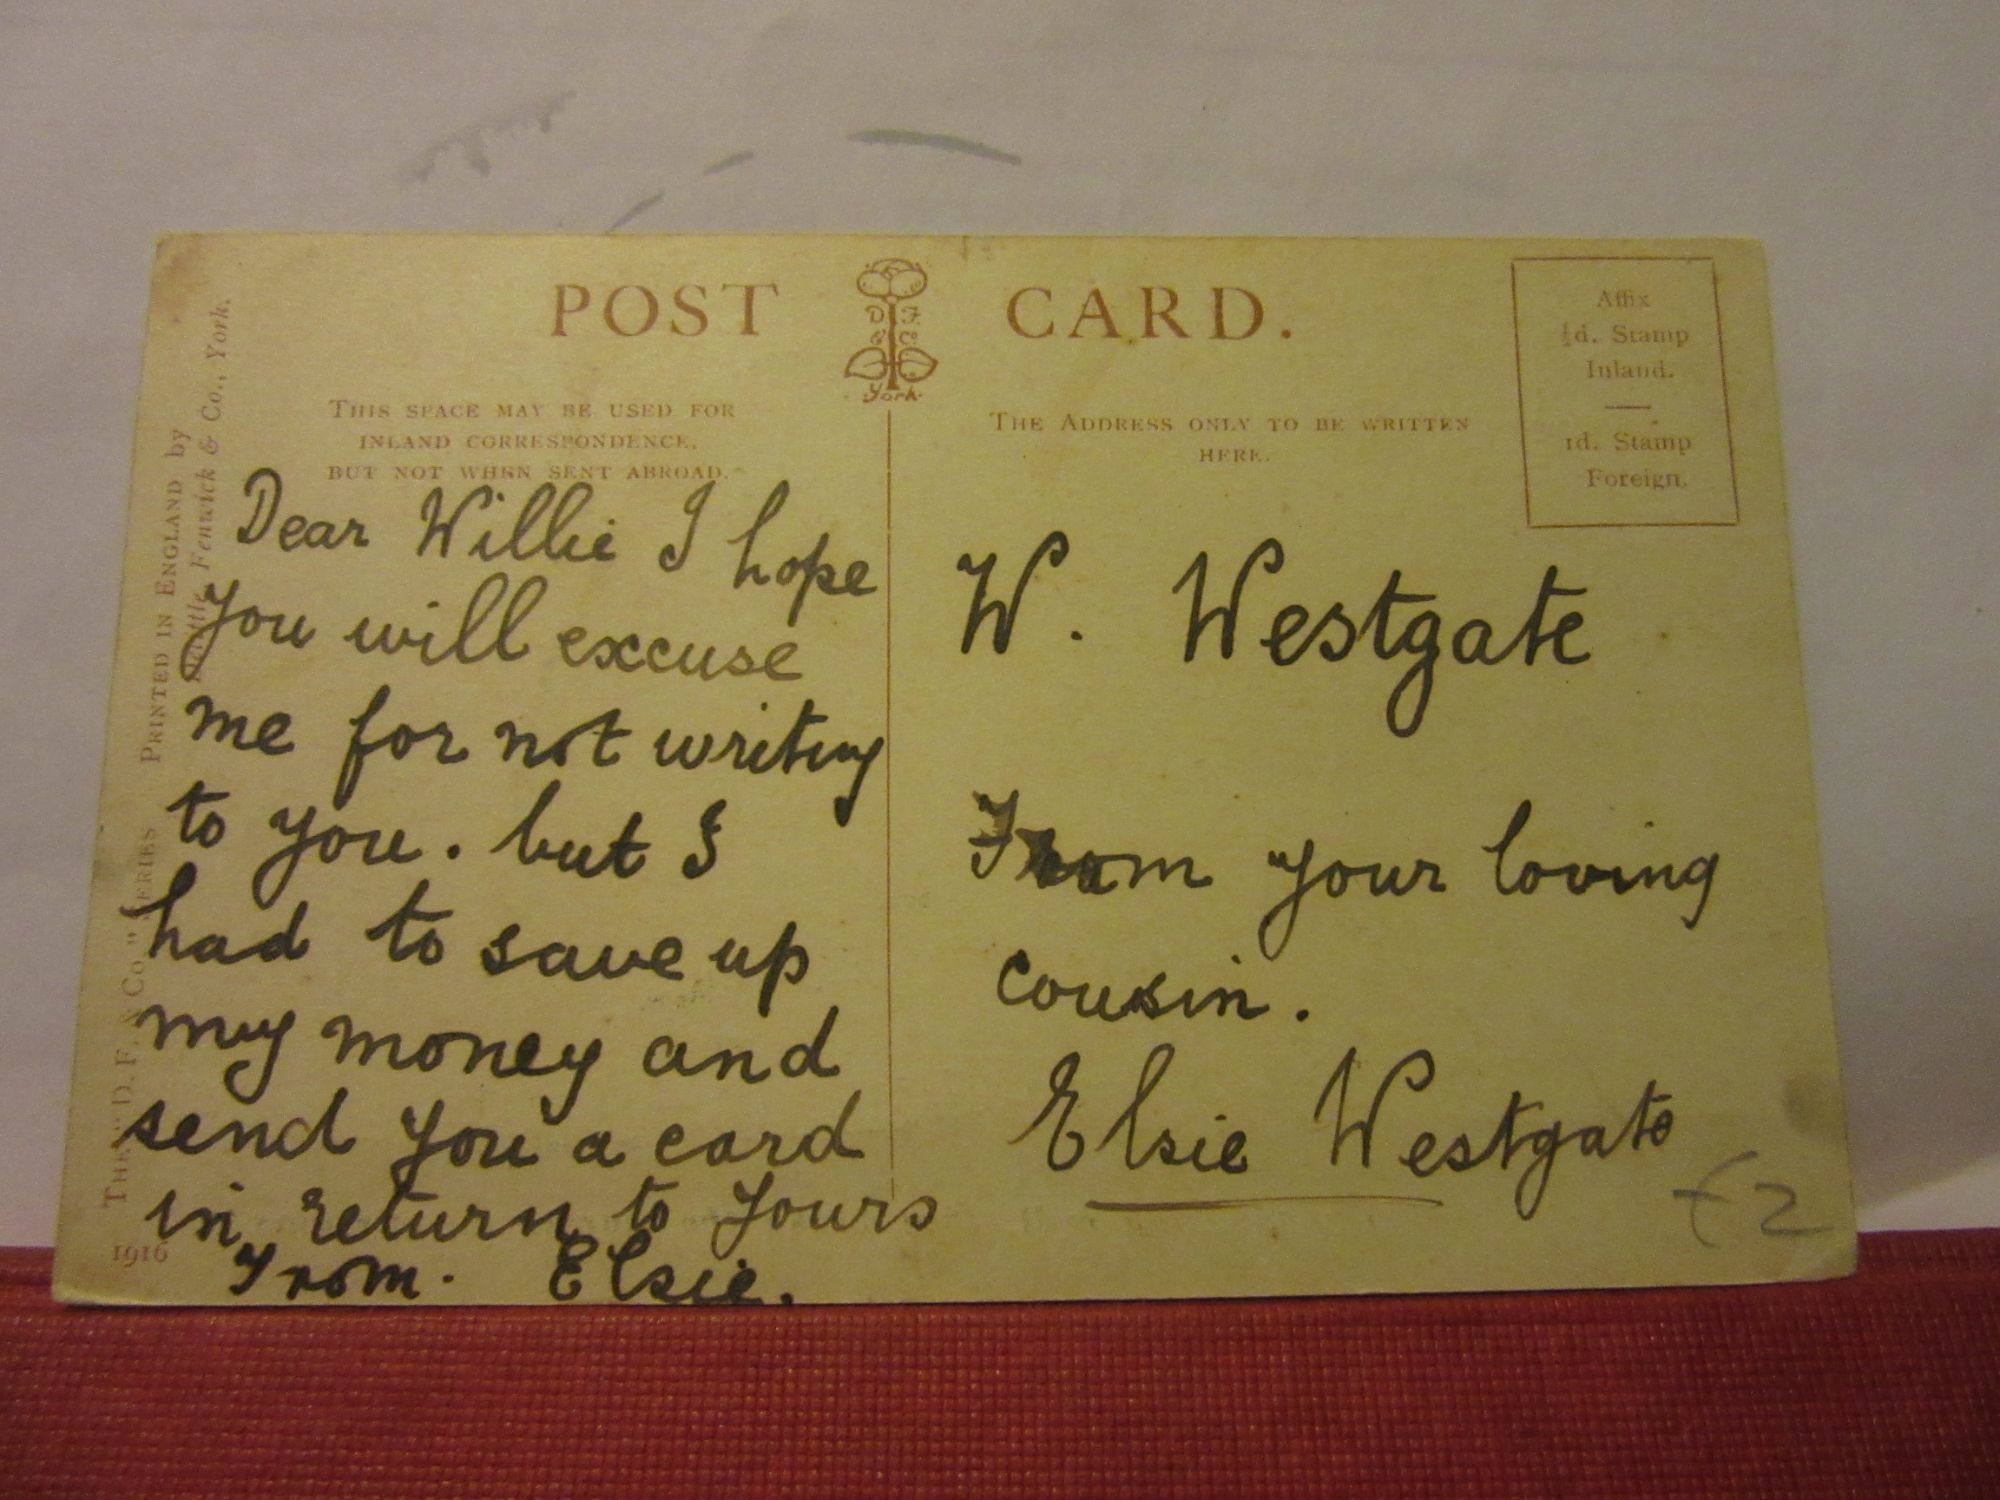 POST CARD.
D F
& C
York.
THIS SPACE MAY BE USED FOR
INLAND CORRESPONDENCE.
BUT NOT WHEN SENT ABROAD.
THE ADDRESS ONLY TO BE WRITTEN
HERE.
Affix
½d. Stamp
Inland.
1d. Stamp
Foreign.
Dear Willie I hope
you will excuse
me for not writing
to you. but I
had to save up
my money and
send you a card
in return to yours
From. Elsie.
W. Westgate
From your loving
cousin.
Elsie Westgate
£2
THE "D. F. & Co." SERIES PRINTED IN ENGLAND by
Fenwick & Co., York.
1916